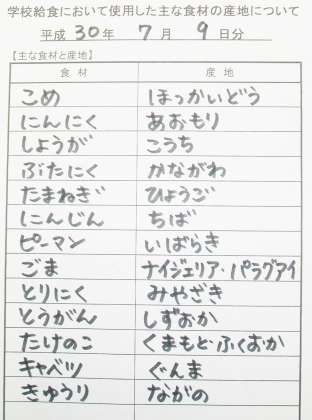 学校給食において使用した主な食材の産地について
平成 30 年 7 月 9 日分
【主な食材と産地】
食材 産地
こめ ほっかいどう
にんにく あおもり
しょうが こうち
ぶたにく かながわ
たまねぎ ひょうご
にんじん ちば
ピーマン いばらき
ごま ナイジェリア・パラグアイ
とりにく みやざき
とうがん しずおか
たけのこ くまもと・ふくおか
キャベツ ぐんま
きゅうり ながの